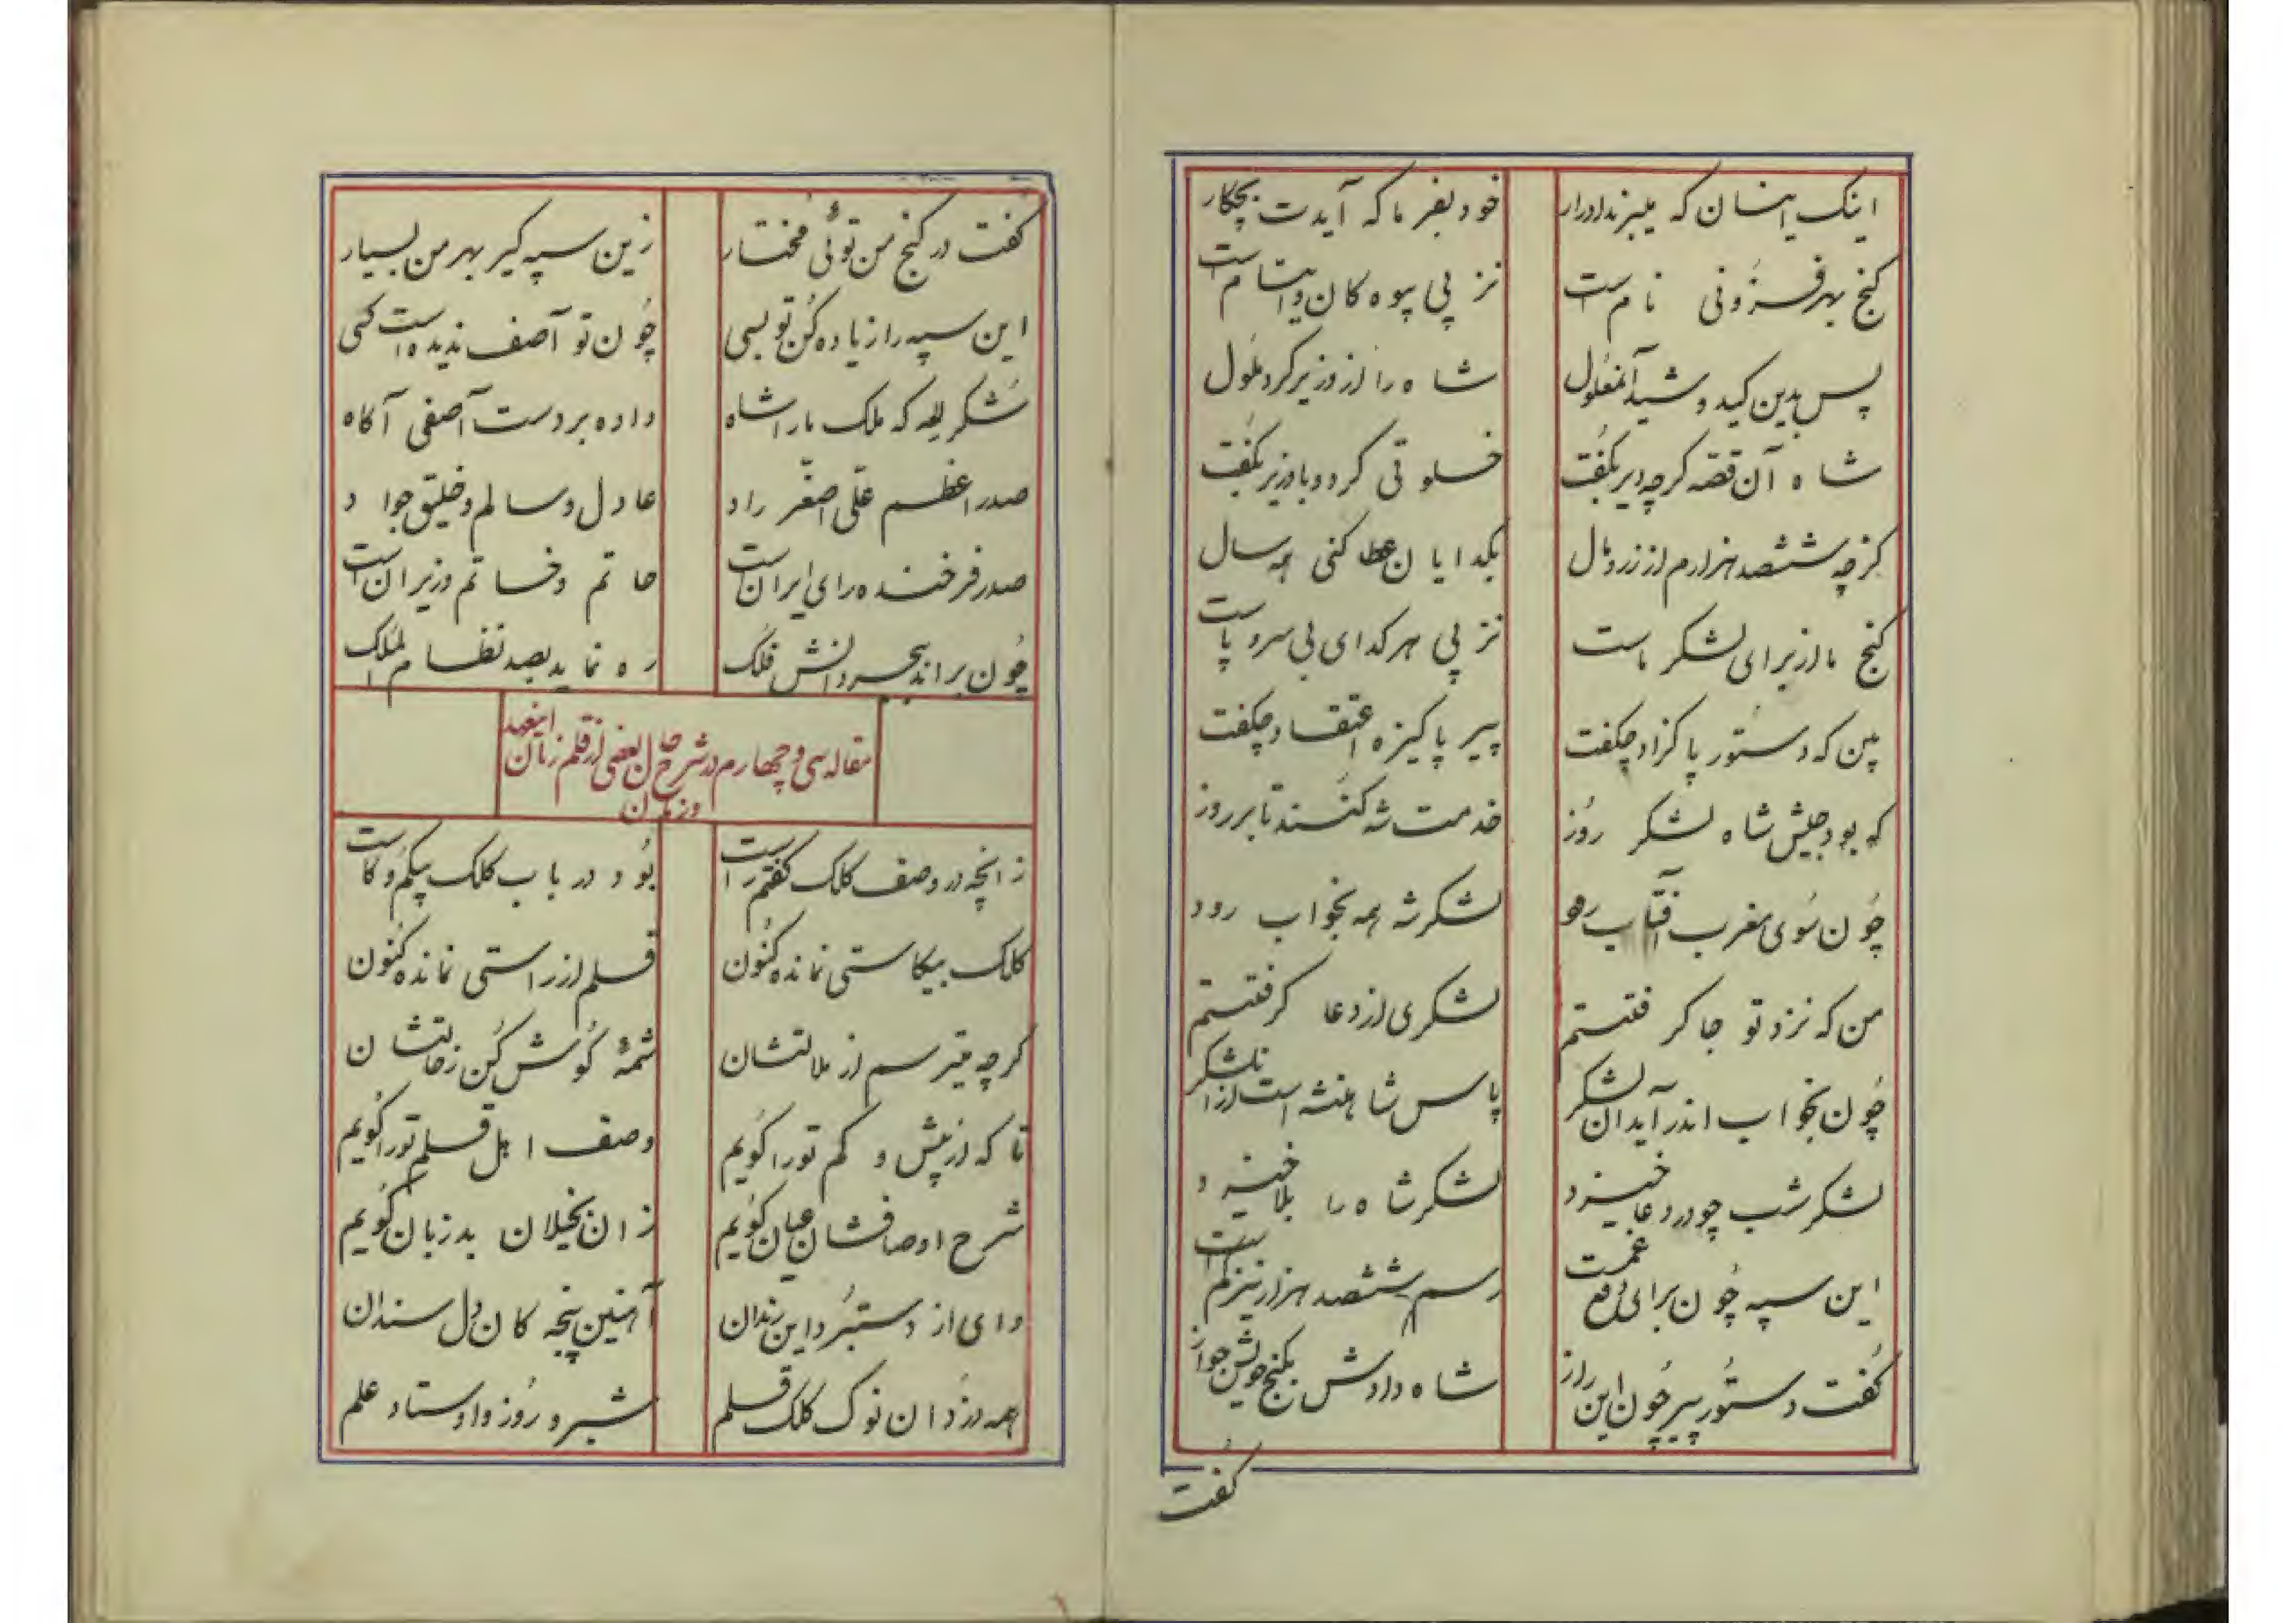 اینک اینسان که میبرند ادرار خود بفرما که آیدت بچکار
گنج بهر فزونی نام است نز پی بیوه کان و ایتام است
پس بدین کید و شید آنمغلول شاه را از وزیر کرد ملول
شاه آن قصه گرچه دیر بگفت خلوتی کرد و با وزیر بگفت
کز چه ششصد هزارم از زر و مال بگدایان عطا کنی همه سال
گنج ما از برای لشکر ماست نز پی هر گدای بی سر و پاست
بین که دستور پاکزاد چگفت پیر پاکیزه اعتقاد چگفت
که بود جیش شاه لشکر روز خدمت شه کنند تا بر روز
چون سوی مغرب آفتاب رود لشکر شه همه بخواب رود
من که نزد تو جا گرفتستم لشکری از دعا گرفتستم
چون بخواب اندر آید آن لشکر پاس شاهنشه است از این لشکر
لشکر شب چو در دعا خیزد لشکر شاه را بلا خیزد
این سپه چون برای دفع غمست رسم ششصد هزار نیز کم است
گفت دستور پیر چون این راز شاه دادش بگنج خویش جواز
گفت
گفت در گنج من توئی مختار زین سپه گیر بهر من بسیار
این سپه را زیاده کن تو بسی چون تو آصف ندیده است کسی
شکر لله که ملک ما را شاه داده بر دست آصفی آگاه
صدر اعظم علی اصغر راد عادل و سالم و خلیق و جواد
صدر فرخنده رای ایران است حاتم و خاتم وزیران است
چون براند ببحر دانش فلک ره نماید بصد نظام الملک
مقاله سی و چهارم در شرح حال بعضی از قلم زنان اینعهد
و زمان
ز آنچه در وصف کلک گفتم راست بود در باب کلک بیکم و کاست
کلک بیکاستی نمانده کنون قلم از راستی نمانده کنون
گرچه میترسم از ملالتشان شمهٔ گوش کن ز حالتشان
تا که از بیش و کم تو را گویم وصف اهل قلم تو را گویم
شرح اوصافشان عیان گویم زان بخیلان بد زبان گویم
وای از دستبرد این رندان آهنین پنجه کان دل سندان
همه دزدان نوک کلک قلم شبرو روز و اوستاد علم